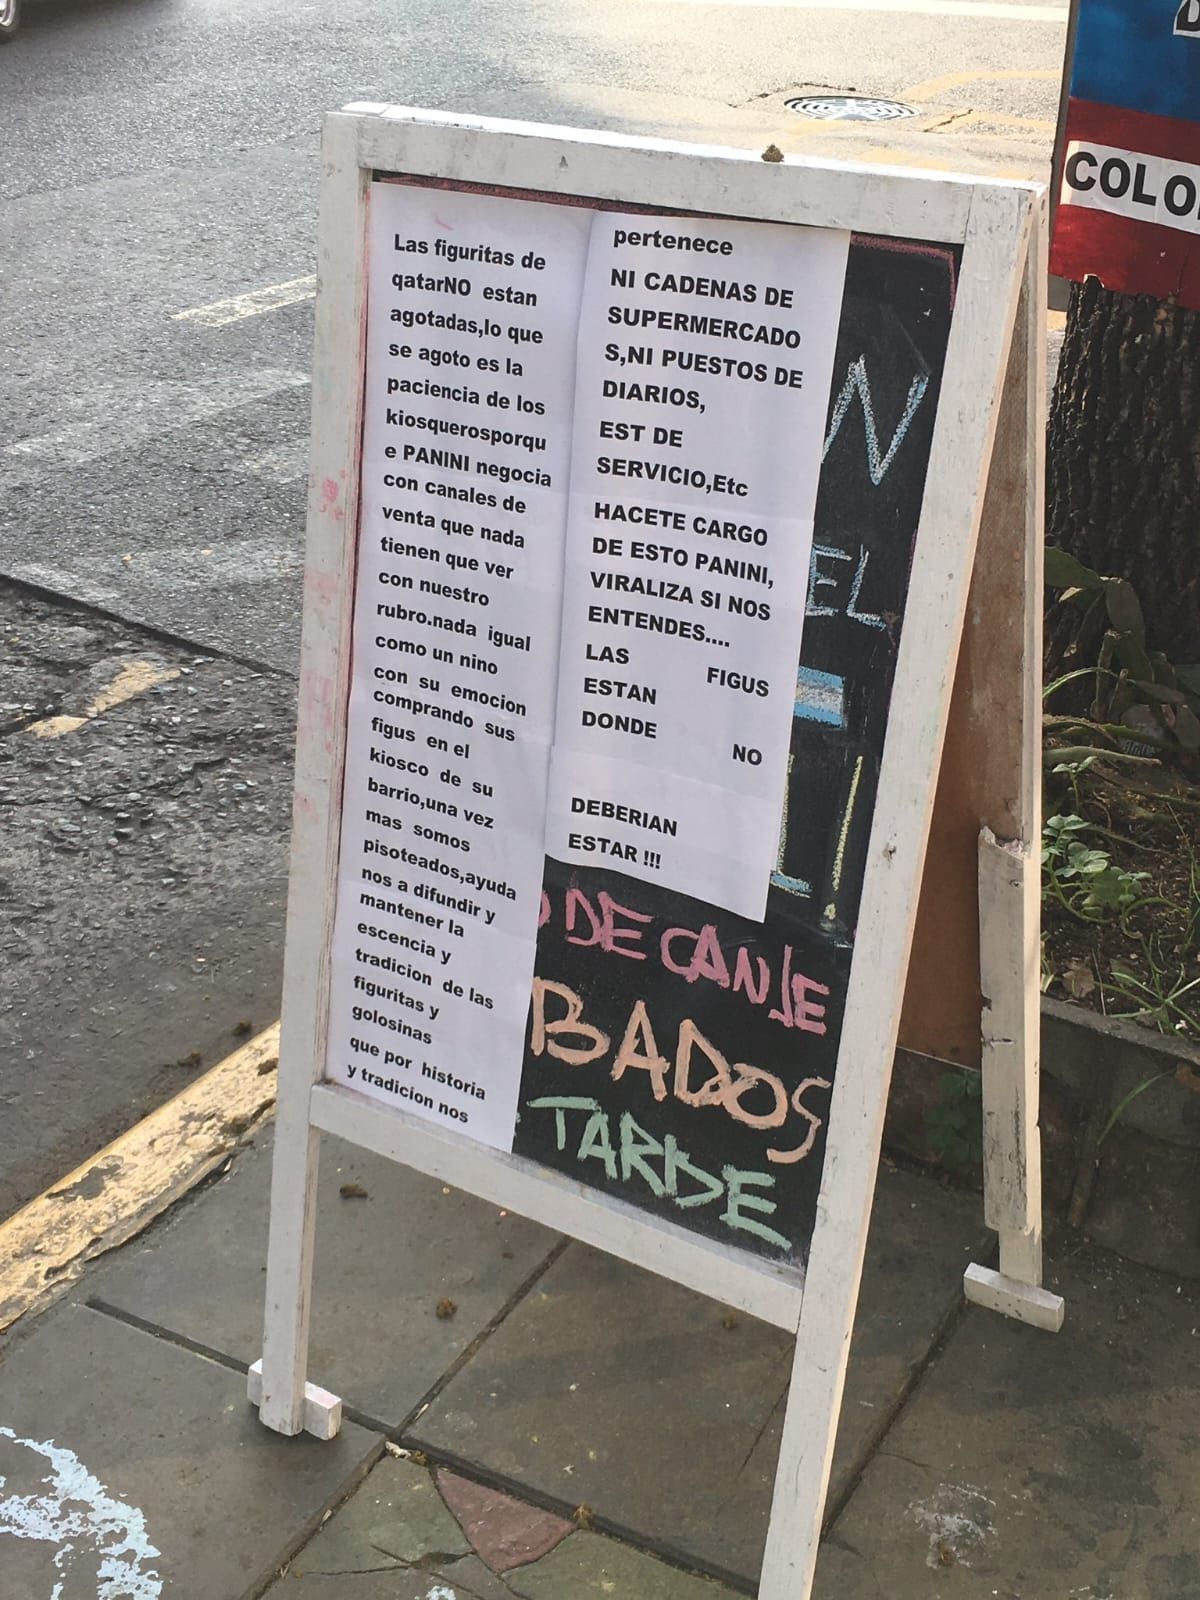 Las figuritas de
qatarNO estan
agotadas,lo que
se agoto es la
paciencia de los
kiosquerosporqu
e PANINI negocia
con canales de
venta que nada
tienen que ver
con nuestro
rubro.nada igual
como un nino
con su emocion
comprando sus
figus en el
kiosco de su
barrio,una vez
mas somos
pisoteados,ayuda
nos a difundir y
mantener la
escencia y
tradicion de las
figuritas y
golosinas
que por historia
y tradicion nos
pertenece
NI CADENAS DE
SUPERMERCADO
S,NI PUESTOS DE
DIARIOS,
EST DE
SERVICIO,Etc
HACETE CARGO
DE ESTO PANINI,
VIRALIZA SI NOS
ENTENDES....
LAS FIGUS
ESTAN
DONDE NO
DEBERIAN
ESTAR !!!
N
EL
DE CANJE
BADOS
TARDE
COLO